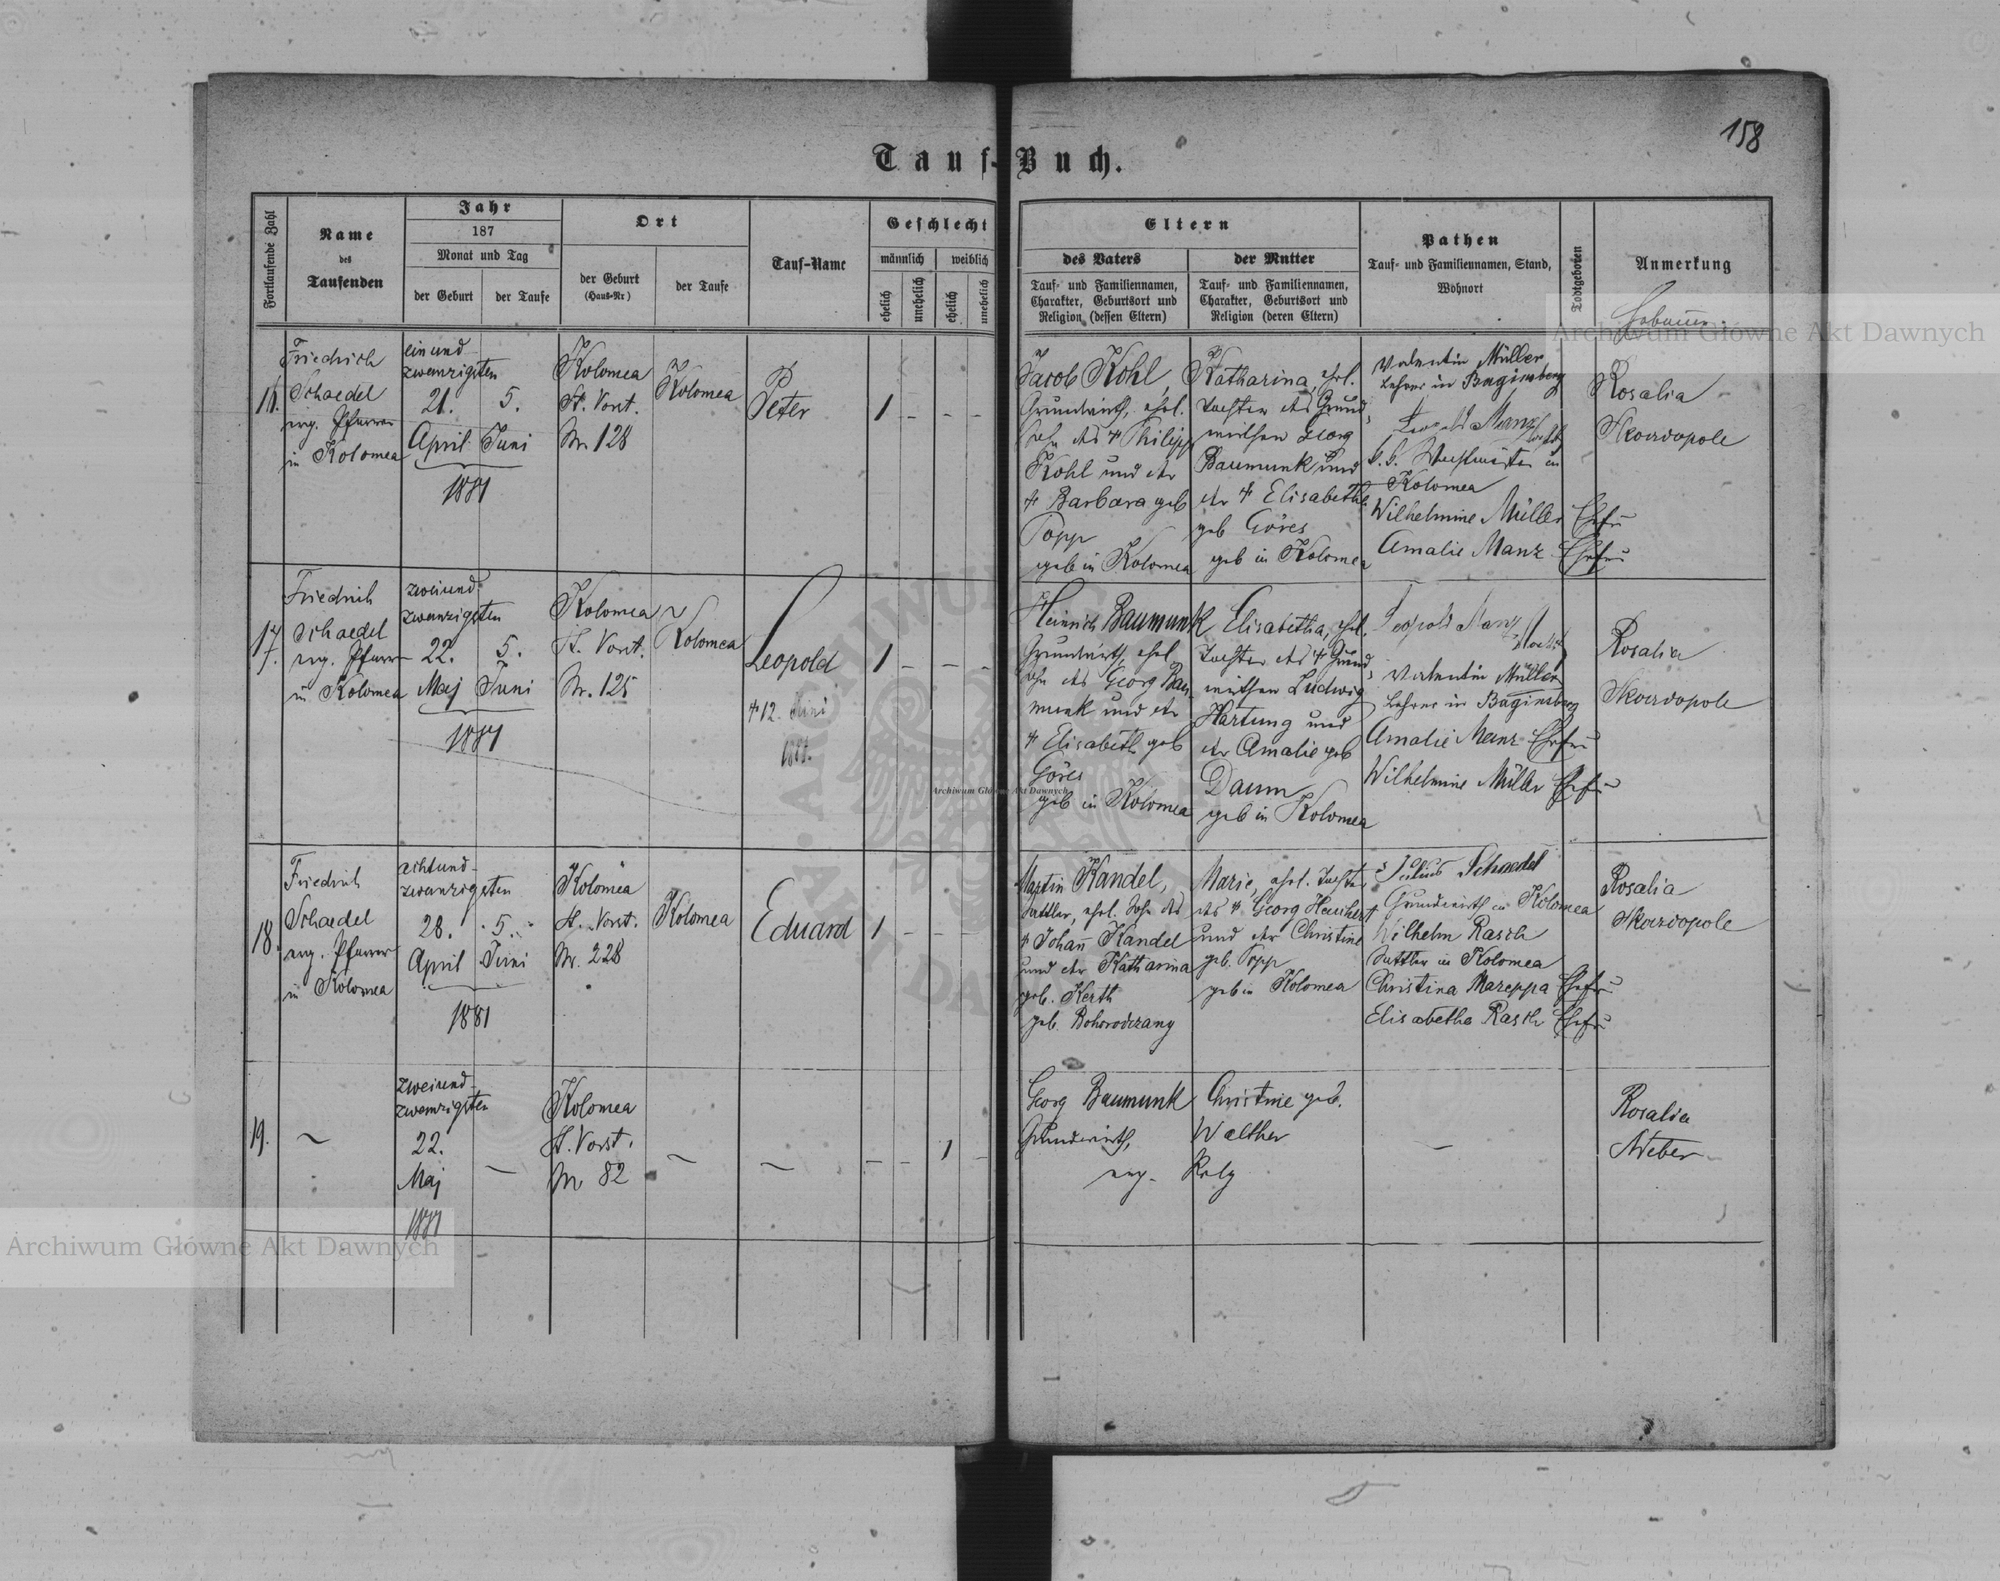 158
Tauf-Buch.
Fortlaufende Zahl
Name
des
Taufenden
Jahr
187
Monat und Tag
der Geburt
der Taufe
Ort
der Geburt
(Haus-Nr)
der Taufe
Tauf-Name
Geschlecht
männlich
weiblich
ehelich
unehelich
ehelich
unehelich
Eltern
des Vaters
Tauf- und Familiennamen,
Charakter, Geburtsort und
Religion (dessen Eltern)
der Mutter
Tauf- und Familiennamen,
Charakter, Geburtsort und
Religion (deren Eltern)
Pathen
Tauf- und Familiennamen, Stand,
Wohnort
Todtgeboren
Anmerkung
16.
Friedrich
Schaedel
evg. Pfarrer
in Kolomea
einund-
zwanzigsten
21.
April
5.
Juni
1881
Kolomea
St. Vorst.
Nr. 128
Kolomea
Peter
1 - - -
Jacob Kohl,
Grundwirth, ehel.
Sohn des † Philipp
Kohl und der
† Barbara geb
Popp
geb in Kolomea
Katharina, ehel.
Tochter des Grund-
wirthen Georg
Baumunk und
der † Elisabeth
geb Göres
geb in Kolomea
Valentin Müller
Lehrer in Baginsberg
Leopold Manz
k. k. Wachtmeister in
Kolomea
Wilhelmine Müller Ehefr
Amalie Manz Ehefr
Rosalia
Skordopole
17.
Friedrich
Schaedel
evg. Pfarrer
in Kolomea
zweiund-
zwanzigsten
22.
Maj
5.
Juni
1881
Kolomea
St. Vorst.
Nr. 125
Kolomea
Leopold
† 12. Juni
1881.
1 - - -
Heinrich Baumunk
Grundwirth, ehel.
Sohn des Georg Bau-
munk und der
† Elisabeth geb
Göres
geb in Kolomea
Elisabetha, ehel.
Tochter des † Grund-
wirthen Ludwig
Hartung und
der Amalie geb
Daum
geb in Kolomea
Leopold Manz
Valentin Müller
Lehrer in Baginsberg
Amalie Manz Ehefr
Wilhelmine Müller Ehefr
Rosalia
Skordopole
18.
Friedrich
Schaedel
evg. Pfarrer
in Kolomea
achtund-
zwanzigsten
28.
April
5.
Juni
1881
Kolomea
St. Vorst.
Nr. 228
Kolomea
Eduard
1 - - -
Martin Kandel,
Sattler, ehel. Sohn des
† Johann Kandel
und der Katharina
geb. Kerth
geb. Bohorodczany
Marie, ehel. Tochter
des † Georg Hauchert
und der Christine
geb. Popp
geb in Kolomea
Julius Schaedel
Grundwirth in Kolomea
Wilhelm Rasch
Sattler in Kolomea
Christina Mareppa Ehefr
Elisabetha Rasch Ehefr
Rosalia
Skordopole
19.
zweiund-
zwanzigsten
22.
Maj
1881
Kolomea
St. Vorst.
Nr 82
- - 1 -
Georg Baumunk
Grundwirth,
evg.
Christine geb.
Walther
Relg
Rosalia
Weber
Archiwum Główne Akt Dawnych
Archiwum Główne Akt Dawnych
Archiwum Główne Akt Dawnych